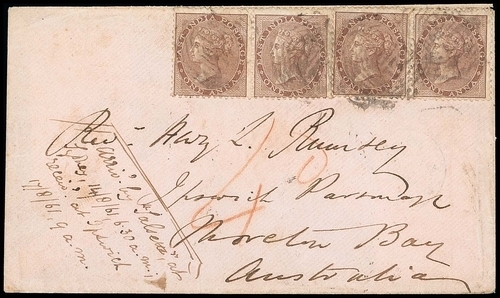 EAST INDIA POSTAGE EAST INDIA POSTAGE EAST INDIA POSTAGE EAST INDIA POSTAGE
ONE ANNA ONE ANNA ONE ANNA ONE ANNA
Revd. Hny L. Rumsey
Ipswich Parsonage
Moreton Bay
Australia
arrivd. by "Salsette" at
Sydney, 14/8/61, 6.30 a.m.,
recevd. at Ipswich
17/8/61, 9 a.m.